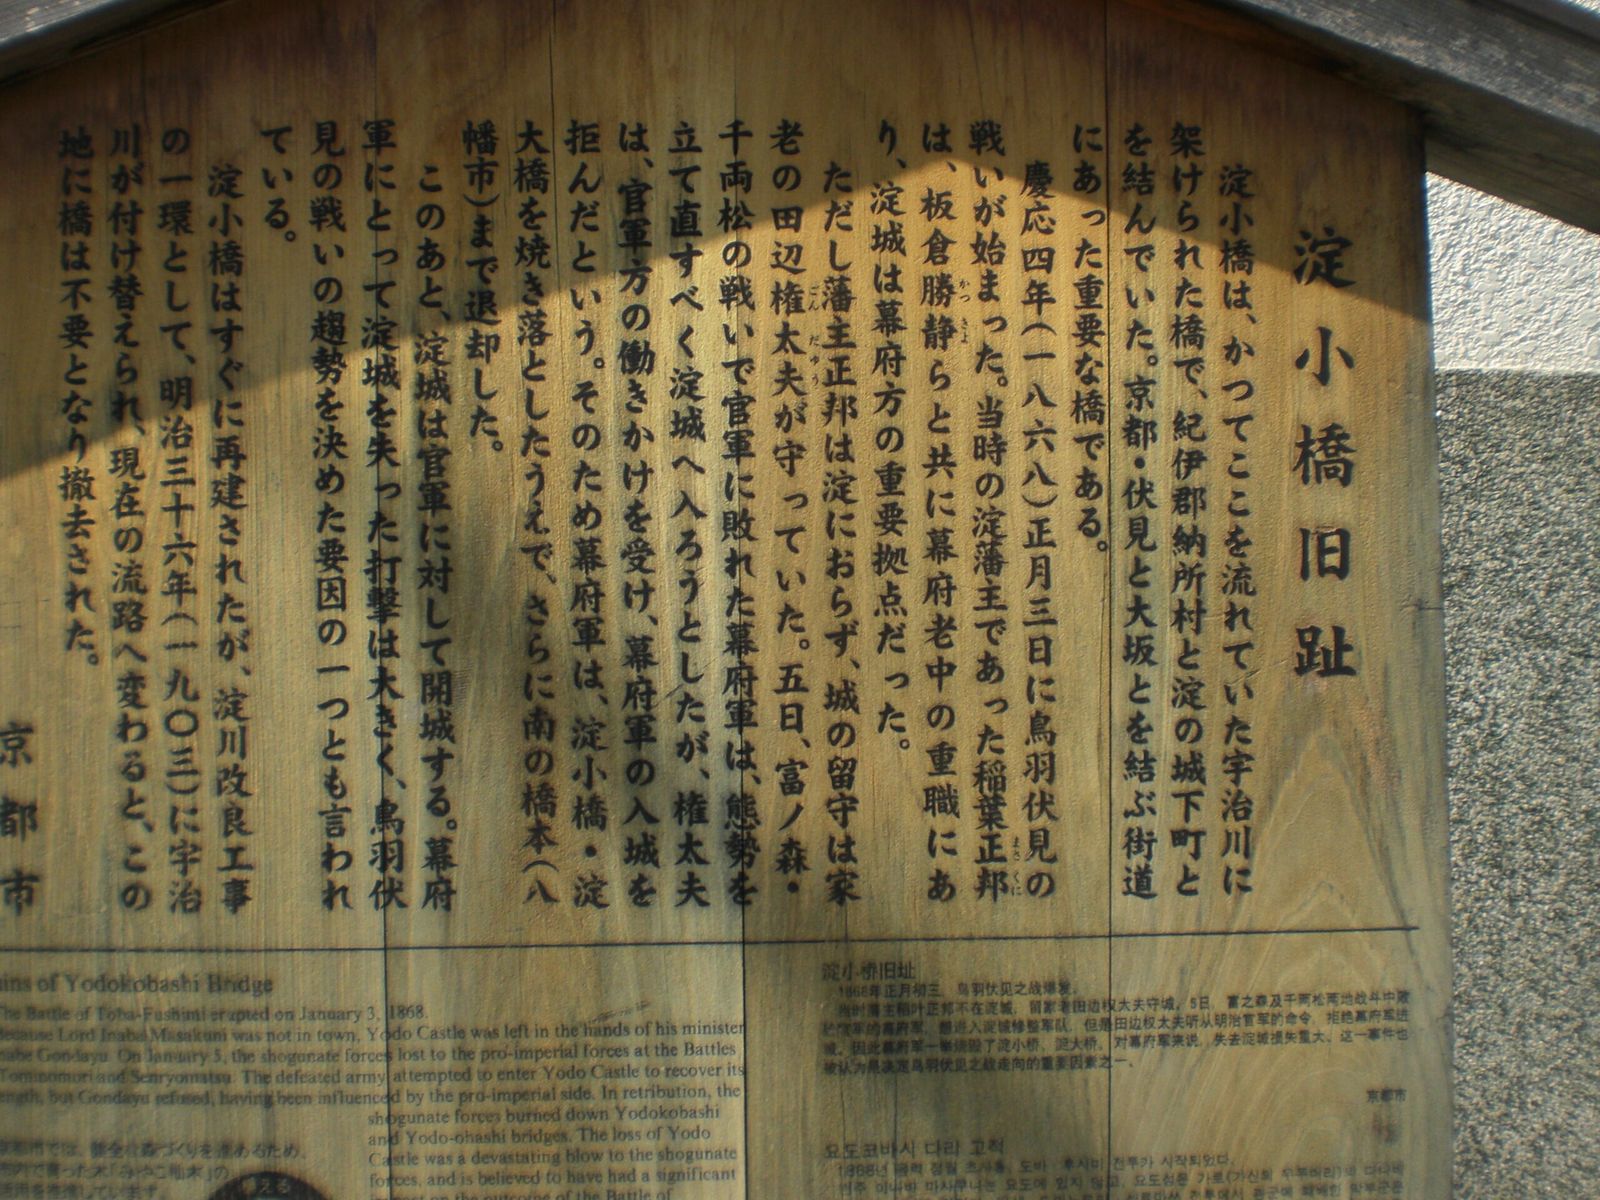 淀小橋旧趾
淀小橋は、かつてここを流れていた宇治川に
架けられた橋で、紀伊郡納所村と淀の城下町と
を結んでいた。京都・伏見と大坂とを結ぶ街道
にあった重要な橋である。
慶応四年(一八六八)正月三日に鳥羽伏見の
戦いが始まった。当時の淀藩主であった稲葉正邦
まさくに
は、板倉勝静らと共に幕府老中の重職にあ
かつきよ
り、淀城は幕府方の重要拠点だった。
ただし藩主正邦は淀におらず、城の留守は家
老の田辺権太夫が守っていた。五日、富ノ森・
ごんだゆう
千両松の戦いで官軍に敗れた幕府軍は、態勢を
立て直すべく淀城へ入ろうとしたが、権太夫
は、官軍方の働きかけを受け、幕府軍の入城を
拒んだという。そのため幕府軍は、淀小橋・淀
大橋を焼き落としたうえで、さらに南の橋本(八
幡市)まで退却した。
このあと、淀城は官軍に対して開城する。幕府
軍にとって淀城を失った打撃は大きく、鳥羽伏
見の戦いの趨勢を決めた要因の一つとも言われ
ている。
淀小橋はすぐに再建されたが、淀川改良工事
の一環として、明治三十六年(一九〇三)に宇治
川が付け替えられ、現在の流路へ変わると、この
地に橋は不要となり撤去された。
京都市
ins of Yodokobashi Bridge
The Battle of Toba-Fushimi erupted on January 3, 1868.
Because Lord Inaba Masakuni was not in town, Yodo Castle was left in the hands of his minister
nabe Gondayu. On January 5, the shogunate forces lost to the pro-imperial forces at the Battles
Tominomori and Senryomatsu. The defeated army attempted to enter Yodo Castle to recover its
ength, but Gondayu refused, having been influenced by the pro-imperial side. In retribution, the
shogunate forces burned down Yodokobashi
and Yodo-ohashi bridges. The loss of Yodo
Castle was a devastating blow to the shogunate
forces, and is believed to have had a significant
impact on the outcome of the Battle of
京都市では、健全な森づくりを進めるため、
市内で育った木「みやこ杣木」の
淀小桥旧址
1868年正月初三,鸟羽伏见之战爆发。
当时藩主稻叶正邦不在淀城,留家老田边权太夫守城。5日,富之森及千两松两地战斗中败
给官军的幕府军,想进入淀城修整军队,但是田边权太夫听从明治官军的命令,拒绝幕府军进
城。因此幕府军一举烧毁了淀小桥、淀大桥。对幕府军来说,失去淀城损失重大,这一事件也
被认为是决定鸟羽伏见之战走向的重要因素之一。
京都市
요도코바시 다리 고적
1868년 음력 정월 초사흘, 도바・후시미 전투가 시작되었다.